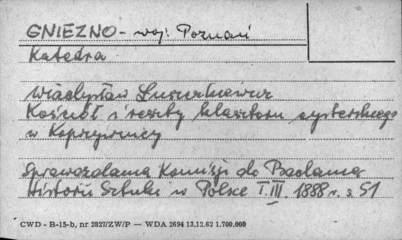 GNIEZNO - woj. Poznań
Katedra
Władysław Łuszczkiewicz
Kościół i reszty klasztoru cysterskiego
w Koprzywnicy
Sprawozdania Komisji do Badania
Historii Sztuki w Polsce T. III. 1888 r. s 51
CWD - B-15-b, nr 2827/ZW/P — WDA 2694 13.12.62 1.700.000